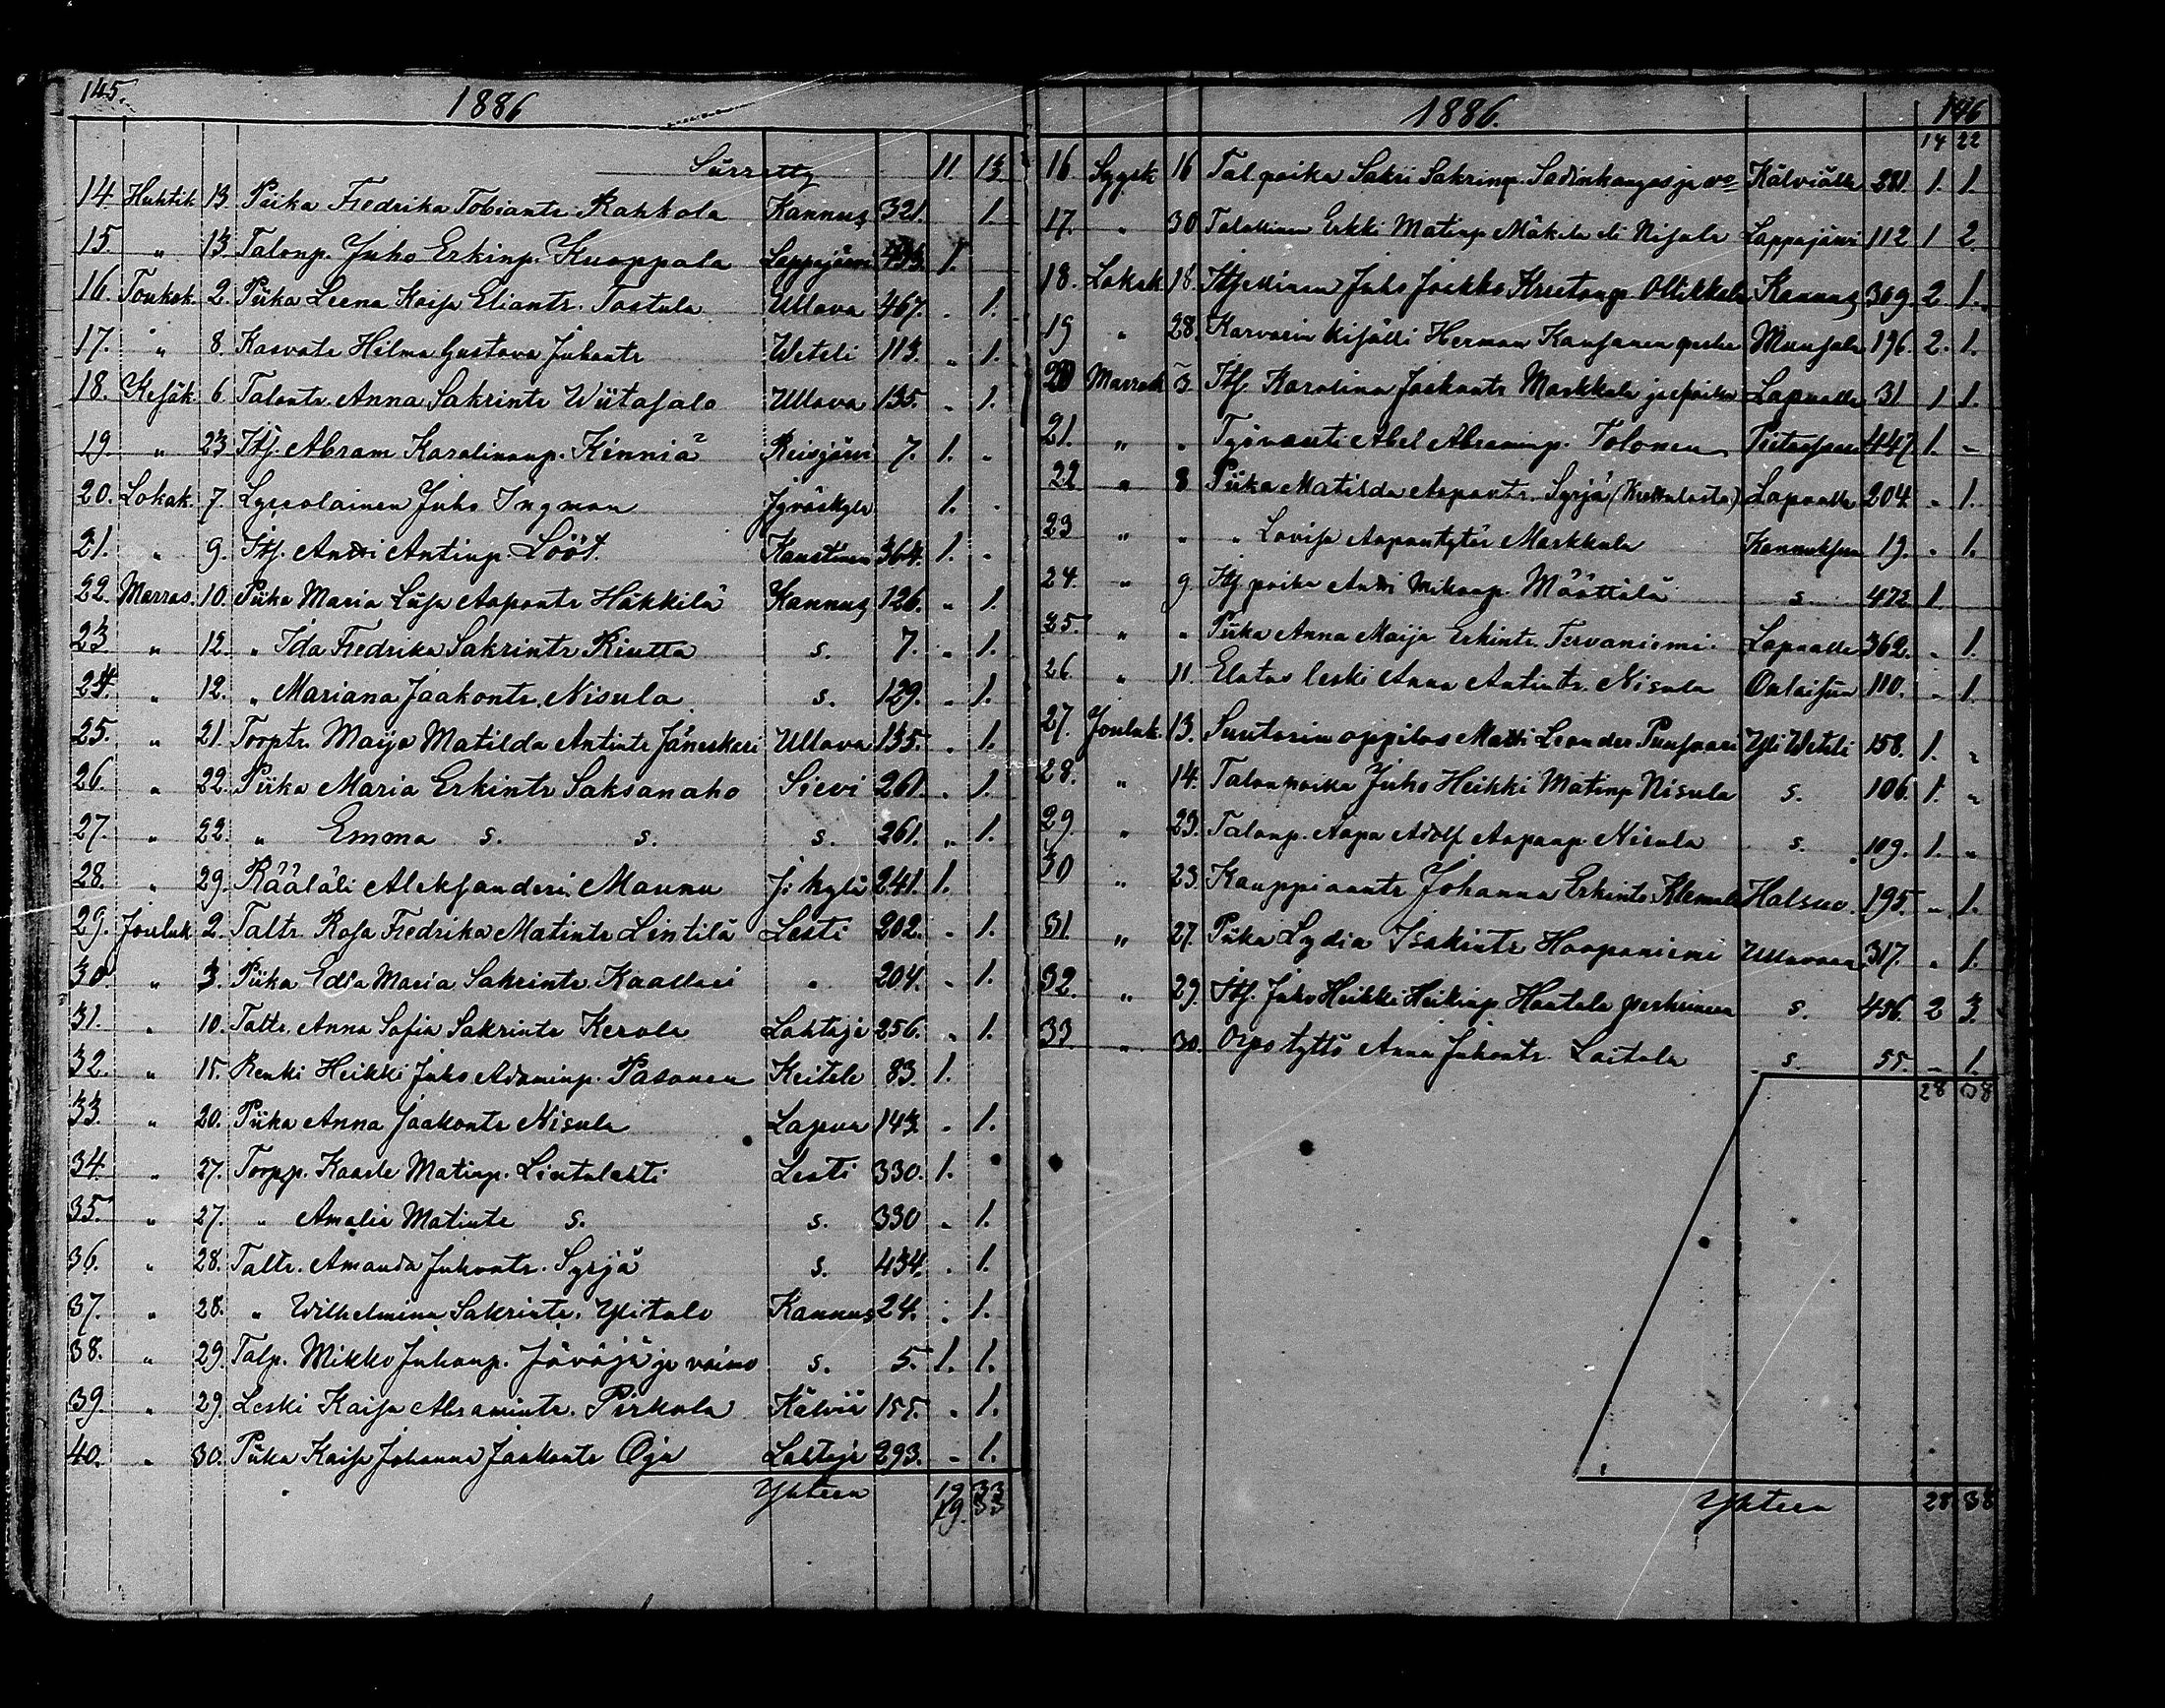 145.
1886
Siirretty 11. 13.
14. Huhtik. 13. Piika Fredrika Tobiantr. Rahkola Kannus 321. 1.
15. " 13. Talonp. Juho Erkinp. Kuoppala Lappajärvi 1.
16. Toukok. 2. Piika Leena Kaisa Eliantr. Tastula Ullava 467. " 1.
17. " 8. Kasvate Hilma Gustava Juhontr Weteli 113. " 1.
18. Kesäk. 6. Talontr. Anna Sakrintr Wiitasalo Ullava 135. " 1.
19. " 23. Its. Abram Karolinanp. Kinniä Reisjärvi 7. 1. "
20. Lokak. 7. Lyseolainen Juho Ingman Jyväskylä 1. "
21. " 9. Its. Antti Antinp. Lööt. Kaustinen 364. 1. "
22. Marras. 10. Piika Maria Liisa Aapontr Häkkilä Kannus 126. " 1.
23 " 12. " Ida Fredrika Sakrintr Riutta s. 7. " 1.
24. " 12. " Mariana Jaakontr. Nisula s. 129. " 1.
25. " 21. Torptr. Maija Matilda Antintr Jäneskari Ullava 135. " 1.
26. " 22. Piika Maria Erkintr Saksanaho Sievi 261. " 1.
27. " 22. " Emma s. s. s. 261. " 1.
28. " 29. Räätäli Aleksanderi Maunu J: kylä 241. 1.
29. Jouluk 2. Taltr. Rosa Fredrika Matintr Lintilä Lesti 202. " 1.
30. " 3. Piika Edla Maria Sakrintr. Kaallari " 204. " 1.
31. " 10. Taltr. Anna Sofia Sakrintr Kerola Lohtaja 256. " 1.
32. " 15. Renki Heikki Juho Adaminp. Pasanen Keitele 83. 1.
33. " 20. Piika Anna Jaakontr Nisula Lapua 143. " 1.
34. " 27. Torpp. Kaarle Matinp. Lintulahti Lesti 330. 1.
35. " 27. " Amalia Matintr s. s. 330 " 1.
36. " 28. Taltr. Amanda Juhontr. Syrjä s. 434. " 1.
37. " 28. " Wilhelmina Sakrintr. Ylitalo Kannus 24. " 1.
38. " 29. Talp. Mikko Juhonp. Jäväjä ja vaimo s. 5. 1. 1.
39. " 29. Leski Kaisa Abramintr. Pirkola Kälviä 155. " 1.
40. " 30. Piika Kaisa Johanna Jaakontr Oja Lohtaja 293. " 1.
Yhteen 19 33
19. 33
1886.
146
14 22
16 Syysk 16 Tal. poika Sakri Sakrinp. Sadinkangas ja vo Kälviälle 281. 1. 1.
17. " 30 Talollinen Erkki Matinp Mäkelä eli Nisula Lappajärvi 112 1 2.
18. Lokak 18. Itsellinen Juho Jaakko Kustaanp. Ollikkala Kannus 369 2. 1.
19 " 28. Karvarin kisälli Herman Kansanen perhe Munsala 196. 2. 1.
20 Marrask 3 Its. Karolina Jaakontr Markkula ja poika Lapualle 31 1 1.
21. " " Työvanti Abel Abraminp. Tolonen Pietarsaari 447 1. -
22 " 8 Piika Matilda Aapontr. Syrjä Lapualle 204 " 1.
23 " " " Lovisa Aapontytär Markkula Kannuksen 19. " 1.
24. " 9 Its. poika Antti Mikonp. Määttälä s. 472 1.
25. " " Piika Anna Maija Erkintr. Tervaniemi. Lapualle 362. " 1.
26 " 11. Elatus leski Anna Antintr. Nisula Oulaisiin 110. " 1.
27. Jouluk. 13. Suutarin oppilas Matti Leander Puusaari Yli Weteli 158. 1. "
28. " 14. Talonpoika Juho Heikki Matinp Nisula s. 106. 1. "
29. " 23. Talonp. Aapo Adolf Aaponp. Nisula s. 109. 1. "
30 " 23. Kauppiaantr Johanna Erkintr. Klemola Halsua. 195. " 1.
31. " 27. Piika Lydia Isakintr Haapaniemi Ullavaan 317. " 1.
32. " 29. Its. Juho Heikki Heikinp. Hautala perheineen s. 436. 2 3.
33 " 30. Orpo tyttö Anna Juhontr. Laitala s. 55. " 1.
28 38
Yhteen 28 38